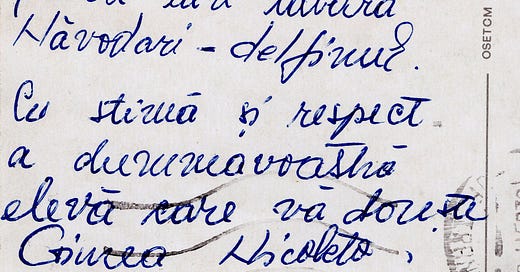 tabăra
Năvodari - delfinul.
Cu stimă și respect
a dumneavoastră
elevă care vă dorește
Ciurea Nicoleta.
OSETCM